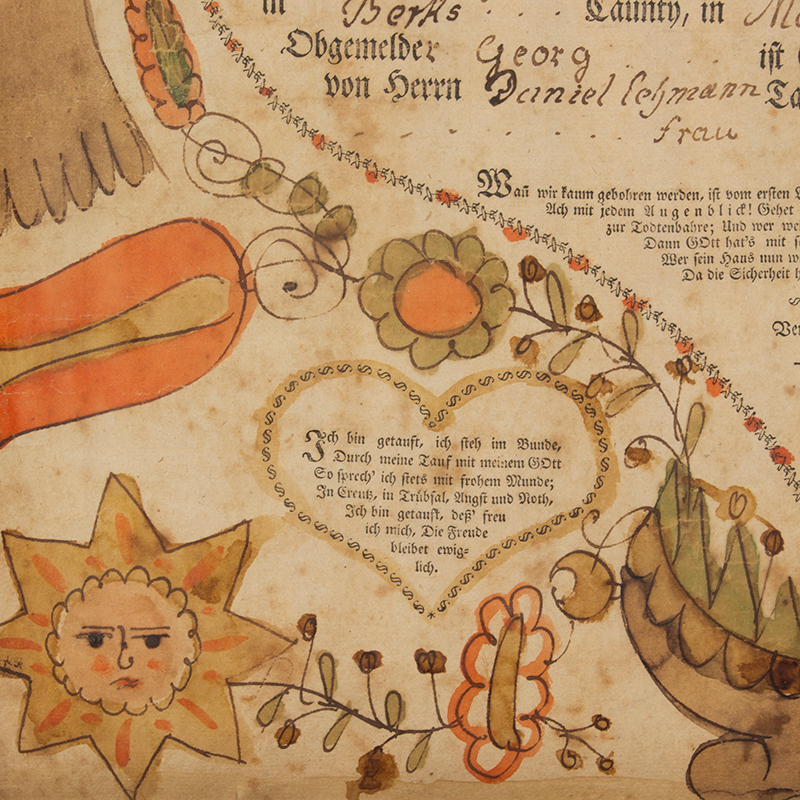 in Berks Caunty, in
Obgemelder Georg ist
von Herrn Daniel Lehmann
frau
Wañ wir kaum gebohren werden, ist vom ersten
Ach mit jedem Augenblick! Gehet
zur Todtenbahre; Und wer
Dann GOtt hat's mit
Wer sein Haus nun
Da die Sicherheit
Ich bin getauft, ich steh im Bunde,
Durch meine Tauf mit meinem GOtt
So sprech' ich stets mit frohem Munde;
In Creutz, in Trübsal, Angst und Noth,
Ich bin getauft, deß' freu
ich mich, Die Freude
bleibet ewig=
lich.